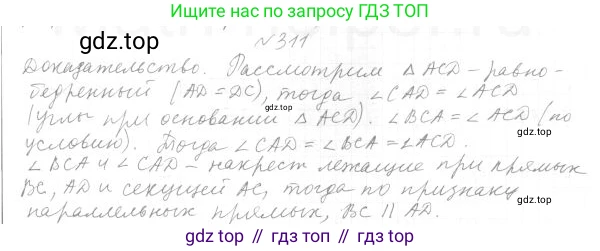 Ищите нас по запросу ГДЗ ТОП
gdz.top
№311
Доказательство. Рассмотрим △ ACD – равно-
бедренный (AD = DC), тогда ∠CAD = ∠ACD
(углы при основании △ ACD). ∠BCA = ∠ACD (по
условию). Тогда ∠CAD = ∠BCA = ∠ACD.
∠BCA и ∠CAD – накрест лежащие при прямых
BC, AD и секущей AC, тогда по признаку
параллельных прямых, BC || AD.
gdz.top
gdz.top // gdz.top // gdz.top